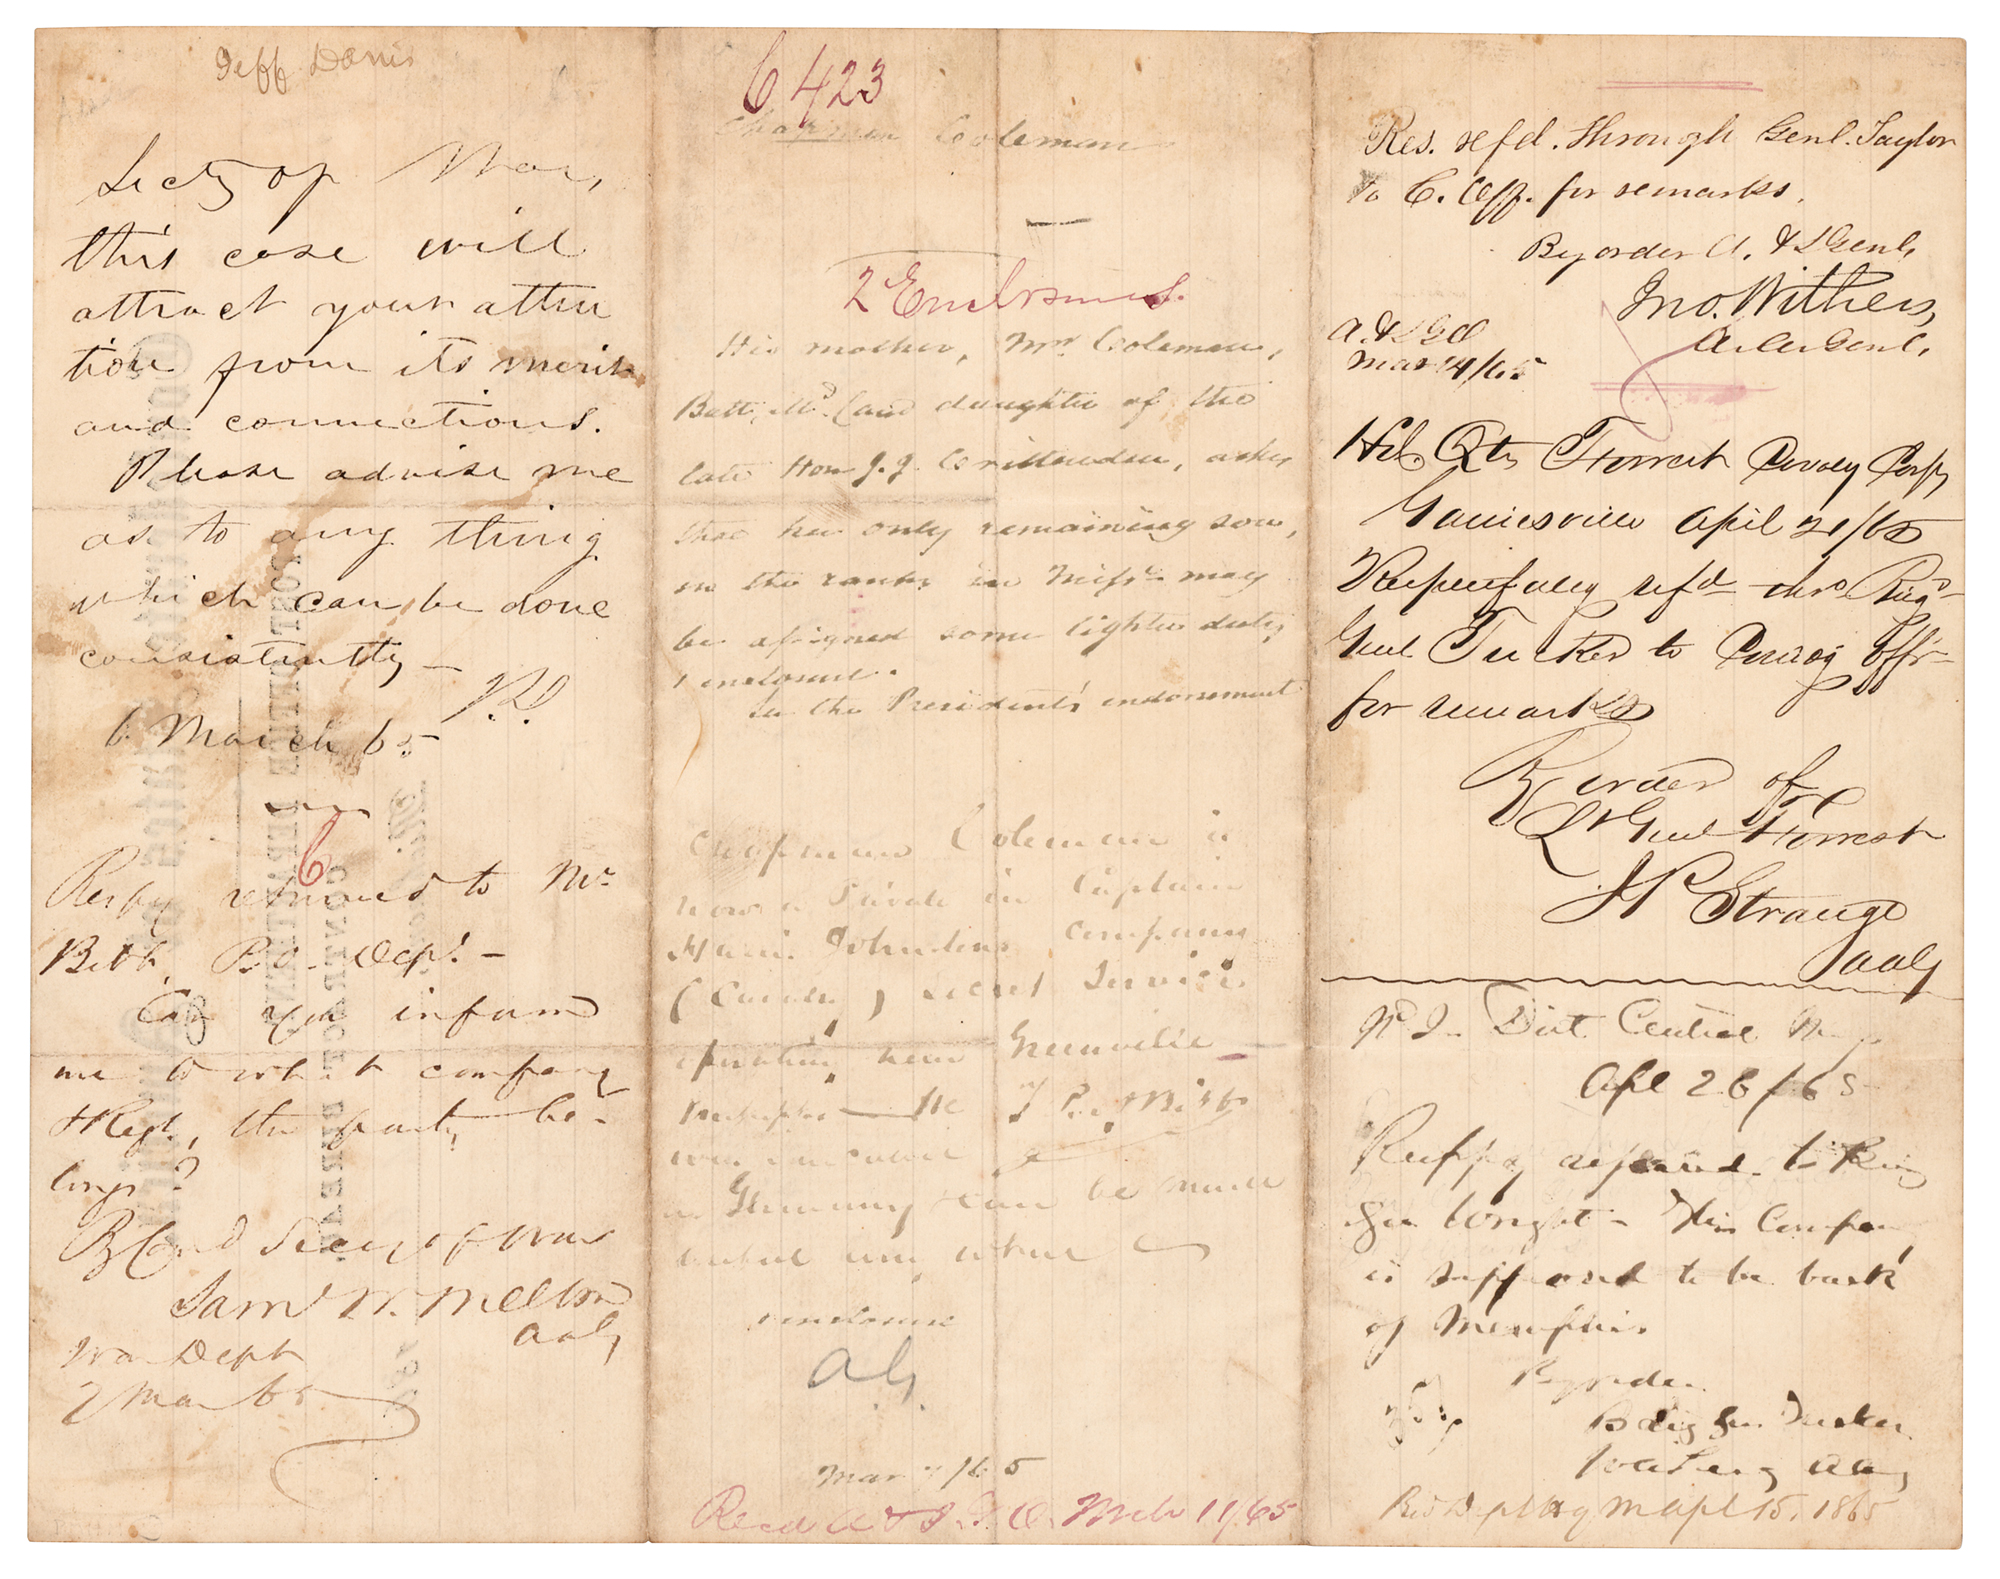 Jeff Davis
Secty of War,
this case will
attract your atten
tion from its merits
and connections.
Please advise me
as to any thing
which can be done
consistently —
J.D.
6 March 65
Respy returned to Mr
Bibb, P.O. Dept. —
Can you inform
me to what company
& Regt., the party be-
longs?
By Comd Secy of War
Saml W. Melton
AAG
War Dept
7 Mar 65
C 423
Chapman Coleman
2 Enclosures.
His mother, Mrs Coleman,
Balt, Md. (and daughter of the
late Hon J. J. Crittenden, asks
that her only remaining son,
in the ranks in Missi may
be assigned some lighter duty,
1 enclosure.
See the President's endorsement
Chapman Coleman is
now a Private in Captain
Johnstons Company
(Cavalry) Secret Service
operating near Greenville
in Germany can be made
useful any where
1 enclosure
A.G.
Mar 7/65
Recd A & I. G. O. Mch 11/65
Res. refd. through Genl. Taylor
to C. Off. for remarks.
By order A. & I Genl,
Jno. Withers,
A. A. Genl,
A. & I G O
Mar 14/65
Hd. Qts Forrest Cavalry Corps
Gainesville April 21/65
Respectfully refd thro Brig
Genl. Tucker to Comdg Offr
for remarks
By order of
Lt Genl Forrest
J P Strange
AAG
Hd Qr Dist Central
Apl 26/65
Respy returned to
Genl Wright — This Company
is supposed to be back
of Memphis
By order
Brig Gen Tucker
AAG
Rd Dept Hq M Apl 15, 1865